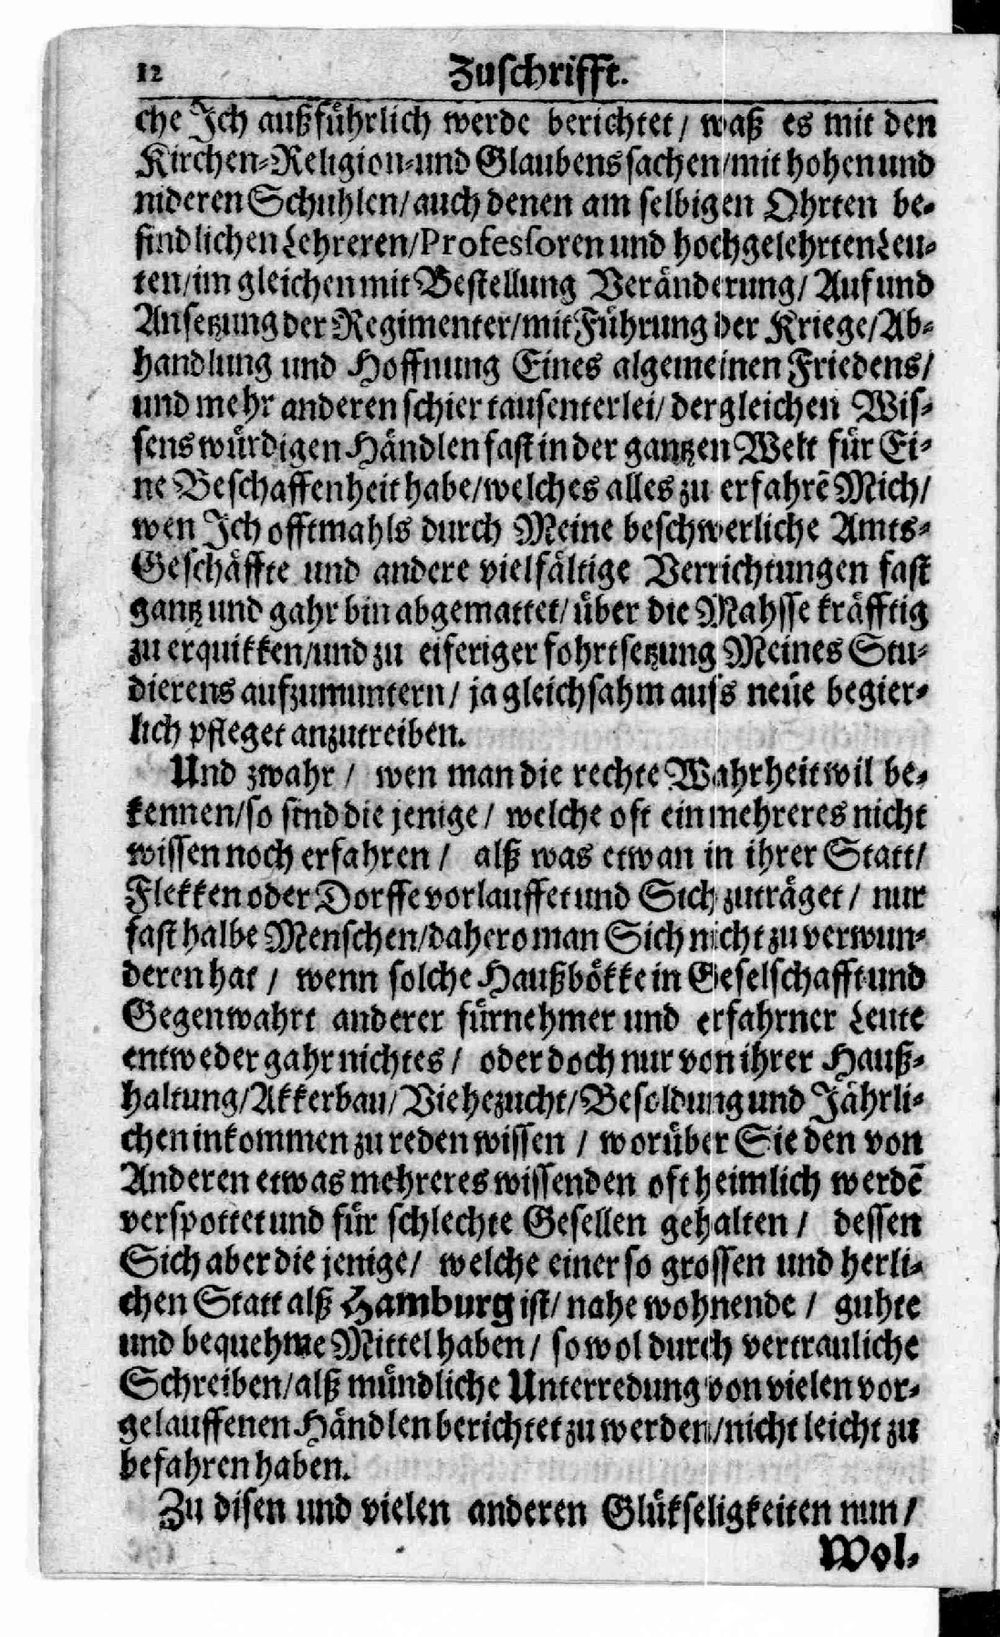 12 Zuschrifft.
che Ich außführlich werde berichtet / waß es mit den
Kirchen-Religion-und Glaubenssachen / mit hohen und
nideren Schuhlen / auch denen am selbigen Ohrten be-
findlichen Lehreren / Professoren und hochgelehrten Leu-
ten / im gleichen mit Bestellung Veränderung / Auf und
Ansetzung der Regimenter / mit Führung der Kriege / Ab-
handlung und Hoffnung Eines algemeinen Friedens /
und mehr anderen schier tausenterlei / dergleichen Wis-
sens würdigen Händlen fast in der gantzen Welt für Ei-
ne Beschaffenheit habe / welches alles zu erfahrē Mich /
wen Ich offtmahls durch Meine beschwerliche Amts-
Geschäffte und andere vielfältige Verrichtungen fast
gantz und gahr bin abgemattet / über die Mahsse kräfftig
zu erquikken / und zu eiferiger fohrtsetzung Meines Stu-
dierens aufzumuntern / ja gleichsahm aufs neüe begier-
lich pfleget anzutreiben.
Und zwahr / wen man die rechte Wahrheit wil be-
kennen / so sind die jenige / welche oft ein mehreres nicht
wissen noch erfahren / alß was etwan in ihrer Statt /
Flekken oder Dorffe vorlauffet und Sich zuträget / nur
fast halbe Menschen / dahero man Sich nicht zu verwun-
deren hat / wenn solche Haußbökke in Geselschafft und
Gegenwahrt anderer fürnehmer und erfahrner Leute
entweder gahr nichtes / oder doch nur von ihrer Hauß-
haltung / Akkerbau / Viehezucht / Besoldung und Jährli-
chen inkommen zu reden wissen / worüber Sie den von
Anderen etwas mehreres wissenden oft heimlich werdē
verspottet und für schlechte Gesellen gehalten / dessen
Sich aber die jenige / welche einer so grossen und herli-
chen Statt alß Hamburg ist / nahe wohnende / guhte
und bequehme Mittel haben / so wol durch vertrauliche
Schreiben / alß mündliche Unterredung von vielen vor-
gelauffenen Händlen berichtet zu werden / nicht leicht zu
befahren haben.
Zu disen und vielen anderen Glükseligkeiten nun /
Wol-